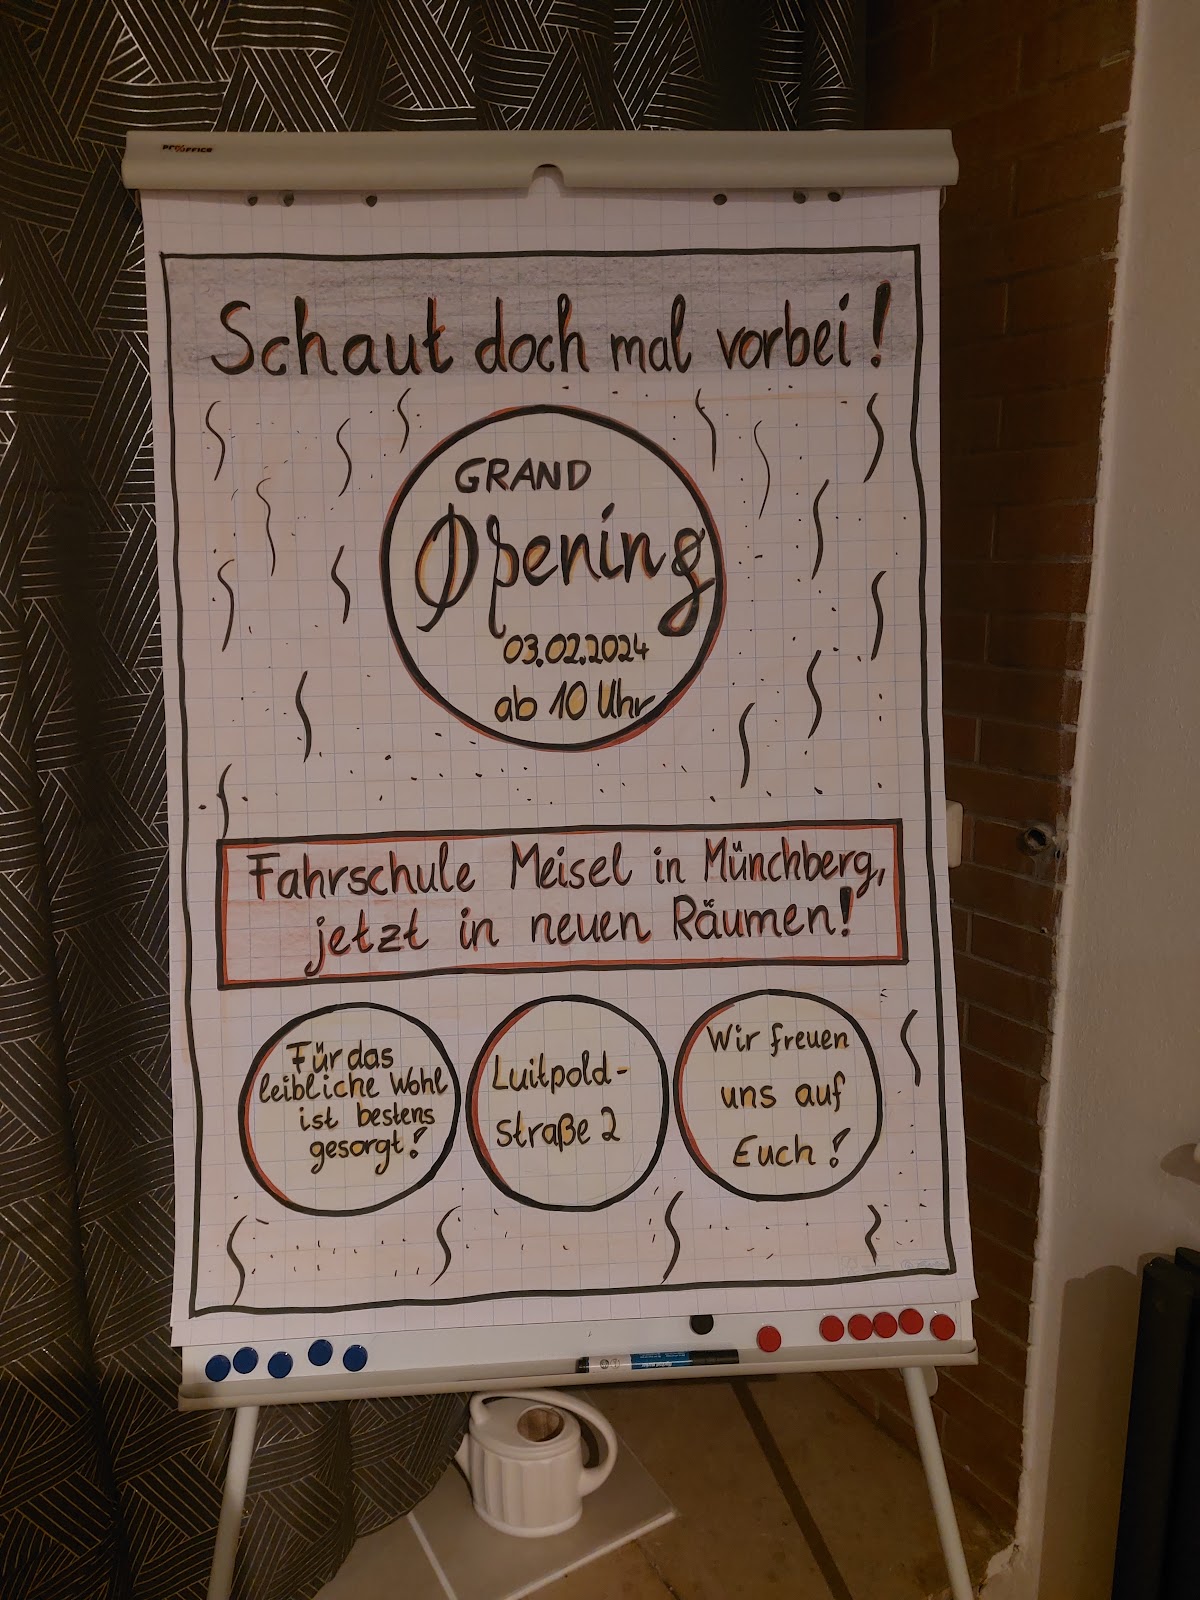 PRO OFFICE
Schaut doch mal vorbei!
GRAND
Opening
03.02.2024
ab 10 Uhr
Fahrschule Meisel in Münchberg,
jetzt in neuen Räumen!
Für das
leibliche Wohl
ist bestens
gesorgt!
Luitpold-
straße 2
Wir freuen
uns auf
Euch!